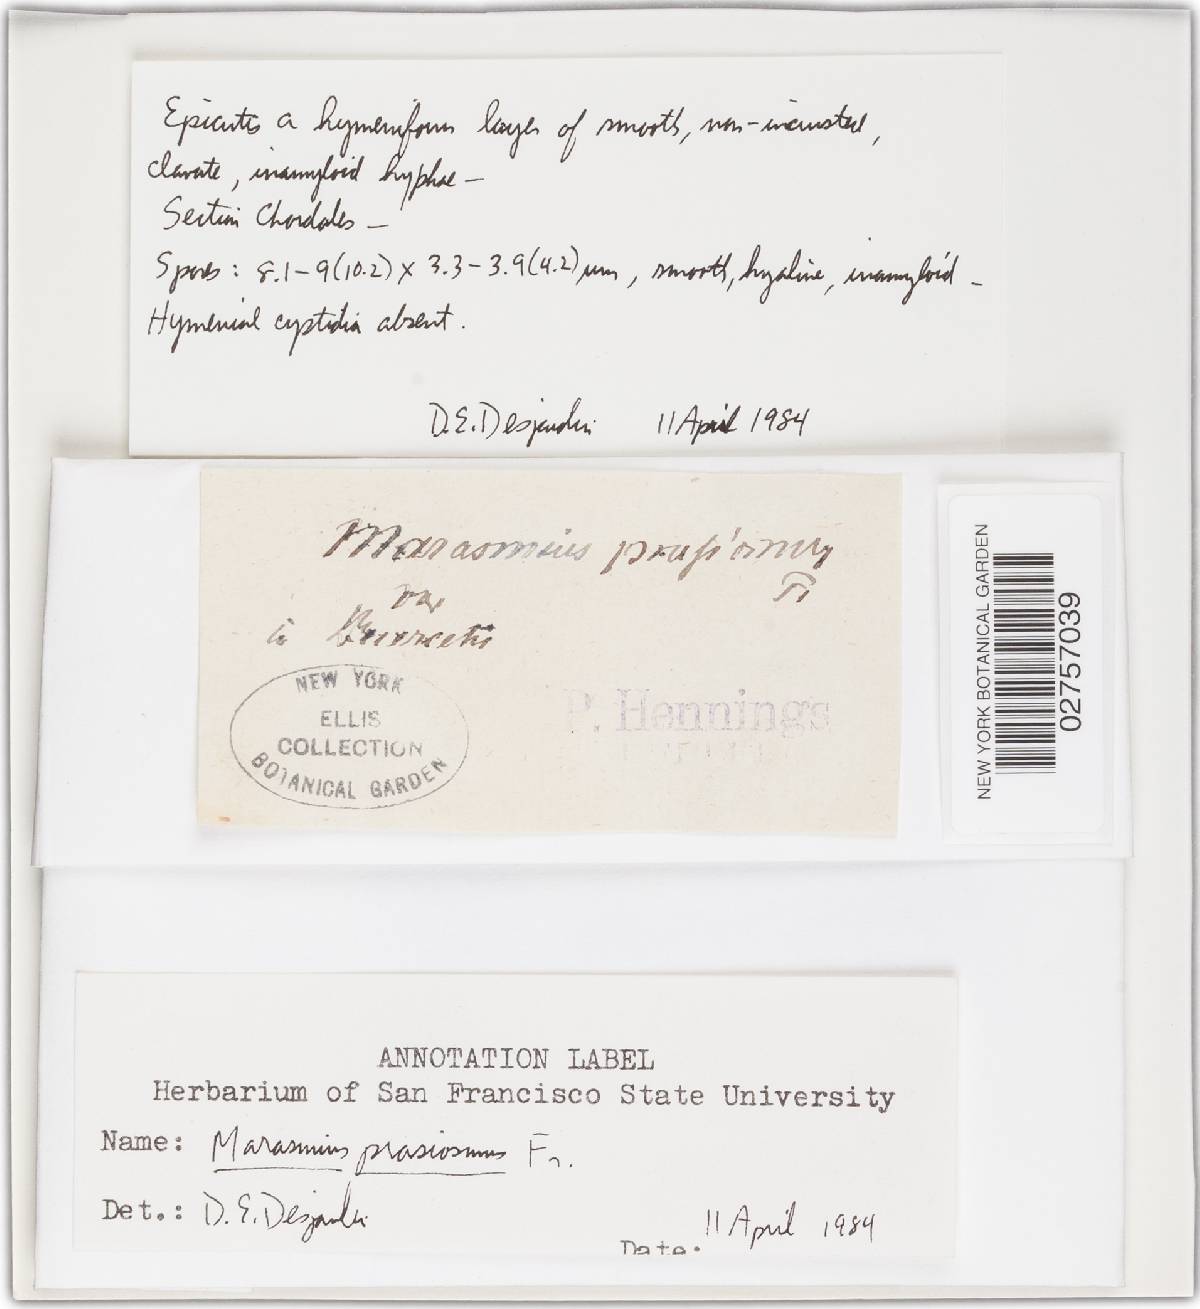 Epicutis a hymeniform layer of smooth, non-incrusted,
clavate, inamyloid hyphae —
Section Chordales —
Spores: 8.1 – 9(10.2) x 3.3 – 3.9(4.2) um, smooth, hyaline, inamyloid —
Hymenial cystidia absent.
D.E. Desjardin 11 April 1984
Marasmius prasiosmus
Fr
var
Quercetis
NEW YORK
ELLIS
COLLECTION
BOTANICAL GARDEN
P. Hennings
NEW YORK BOTANICAL GARDEN
02757039
ANNOTATION LABEL
Herbarium of San Francisco State University
Name: Marasmius prasiosmus Fr.
Det.: D.E. Desjardin 11 April 1984
Date: